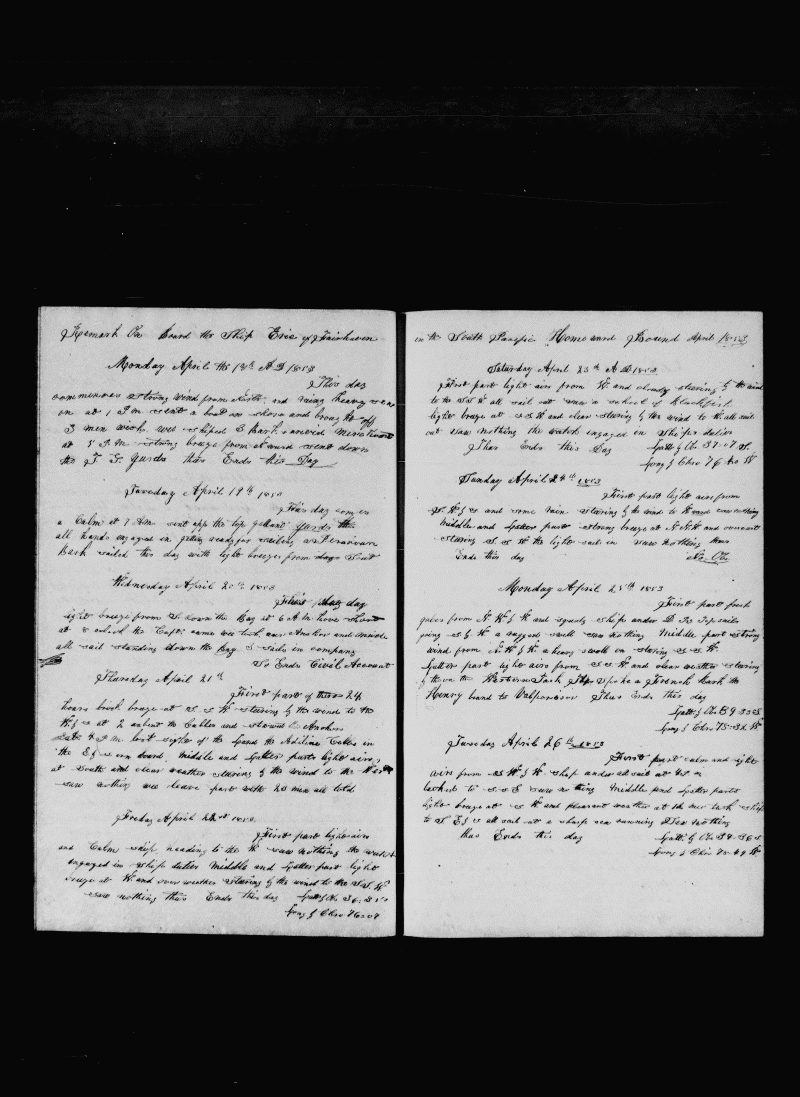 Remark On Board the Ship Erie of Fairhaven
Monday April the 18th A D 1853
This day
commences strong wind from North, and heavy sea
on at 1 P M sent a boat on shore and brought off
3 men which wee shiped
at 5 P.M. strong breeze from went down
the T G yards thus Ends this Day
Tuesday April 19th 1853
This day comes
a Calm at 7 AM sent upp the top gallant yards
all hands engaged in getting ready for sailing a Peruvian
Bark sailed this day with light breezes from South
Wednesday April 20th 1853
This day
light breeze from S. down the Bay at 6 A.M. hove short
at 8 oclock the Capt. came wee took our Anchor and
all sail standing down the bay 3 sails in company
So Ends Civil Account
Thursday April 21th
First part of these 24
hours brisk breeze at S S W steering by the wind to the
W at 2 unbent the Cables and stowed Anchors
Late 4 P.M. lost sight of the land the Adiline Gibbs in
the E on board. Middle and Latter parts light airs
at South and clear weather steering by the wind to the
saw nothing wee leave port with 23 men all told
Friday April 22nd 1853
First part light airs
and Calm ship heading to the W saw nothing the watch
engaged in ships duties Middle and Latter part light
breeze at W and over weather steering by the wind to the S.S.W
saw nothing thus Ends this day Latt by Ob 36
Long by Chro 76
in the South Pacific Homeward Bound April 1853
Saturday April 23th A D 1853
First part light airs from W and cloudy steering by the wind
to the S S W all sail out saw a school of blackfish
light breeze at S S W and clear steering by the wind to the all sail
out saw nothing the watch engaged in Ships duties
Thus Ends this Day Latt by Ob 37-07 S.
Long by Chro 76 W
Sunday April 24th 1853
First part light airs from
and some rain steering by the wind to W saw nothing
Middle and Latter part strong breeze at N.N.W and overcast
steering S S W the light sail in saw nothing thus
Ends this day No Ob.
Monday April 25th 1853
First part fresh
gales from N W by W and squaly ship under D R Topsails
going S by W a rugged swell saw nothing Middle part strong
wind from N W by W a heavy swell on steering S S W.
Latter part light airs from S S W and clear weather steering
by the on the Western Tack Spoke a French bark the
Henry bound to Valporaiso Thus Ends this day
Latt by Ob 39-33 S
Long by Chro 75-32 W
Tuesday April 26th 1853
First part calm and light
airs from S W by W ship under all sail at 4
tacked to S S E saw nothing Middle and Latter parts
light breeze at S W and pleasant weather at 12 tack ship
to S E all sail out a sharp sea running Saw nothing
thus Ends this day Latt by Ob 39-36 S
Long by Chro 75-49 W